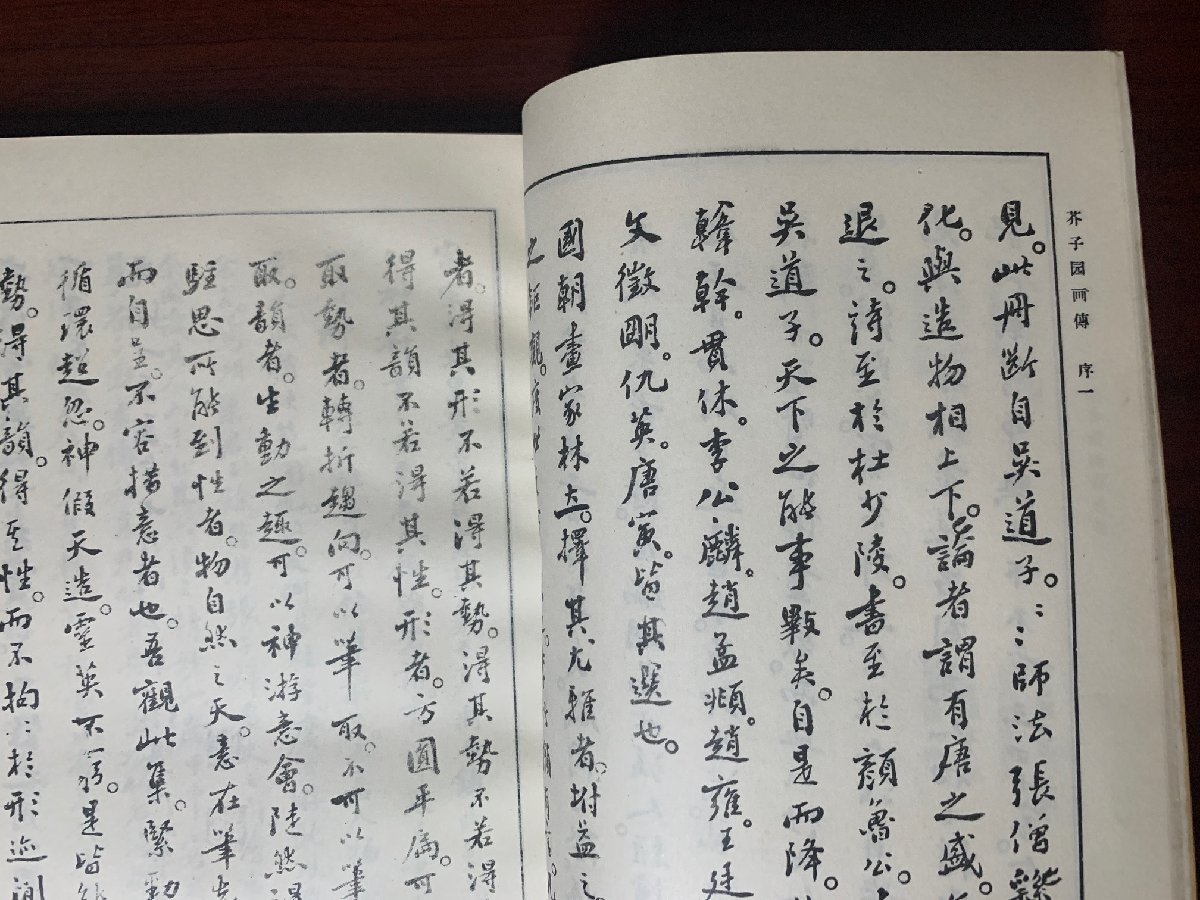 芥子园画傳 序一
見。此冊斷自吳道子。〻〻師法張僧繇
化。與造物相上下。論者謂有唐之盛。
退之。詩至於杜少陵。書至於顏魯公。
吳道子。天下之能事畢矣。自是而降。
韓幹。貫休。李公麟。趙孟頫。趙雍。王廷
文徵明。仇英。唐寅。皆其選也。
國朝畫家林立。擇其尤雅者。坿益之。
之鉅觀。
者。得其形不若得其勢。得其勢不若得
得其韻不若得其性。形者。方圓平扁。可
取勢者。轉折趨向。可以筆取。不可以筆
取。韻者。生動之趣。可以神游意會。陡然得
駐思所能到性者。物自然之天。意在筆先
而自呈。不容措意者也。吾觀此集。緊勁
循環超忽。神假天造。靈英不窮。是皆能
勢。得其韻。得其性。而不拘〻於形迹間